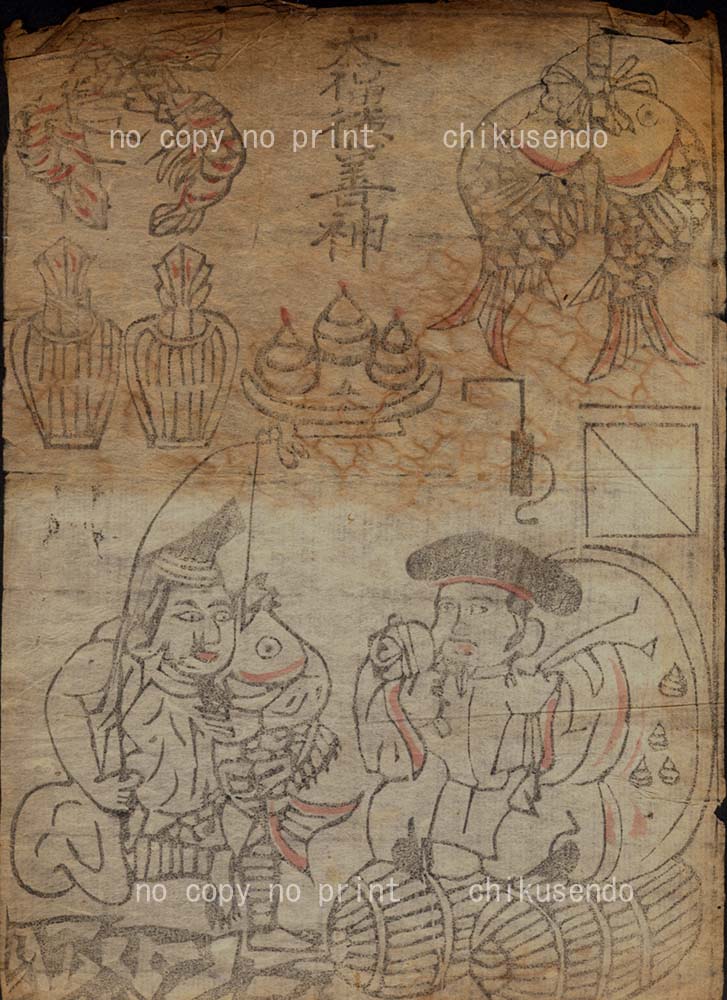 大福徳善神
no copy no print chikusendo
no copy no print chikusendo